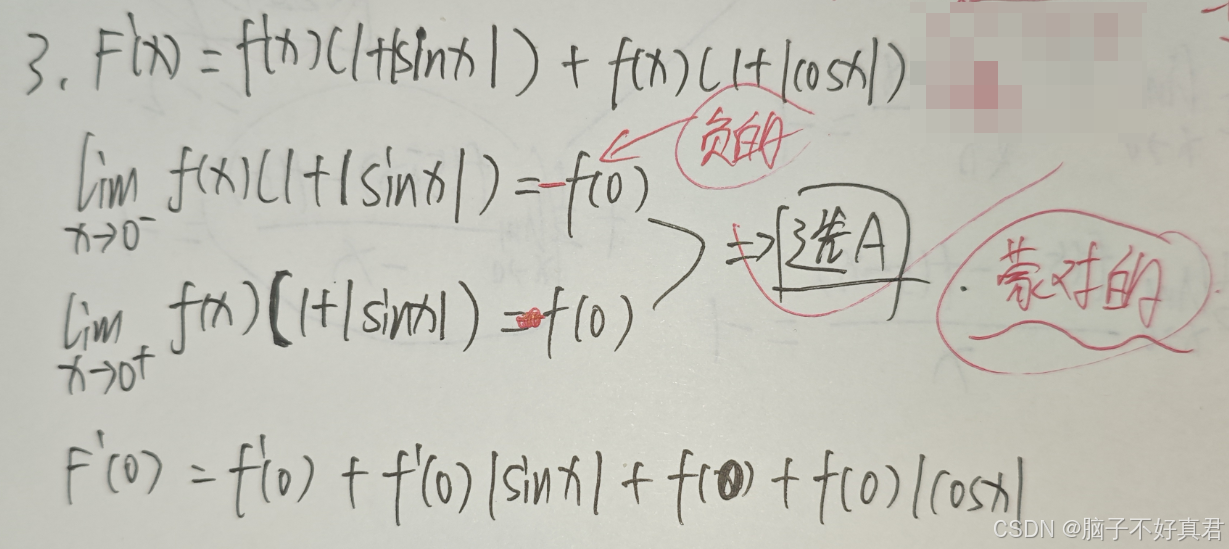 3. F'(x) = f'(x)(1+|sinx|) + f(x)(1+|cosx|)
负的
lim x→0⁻ f(x)(1+|sinx|) = -f(0)
⇒ 选A
蒙对的
lim x→0⁺ f(x)(1+|sinx|) = f(0)
F'(0) = f'(0) + f'(0)|sinx| + f(0) + f(0)|cosx|
CSDN @脑子不好真君